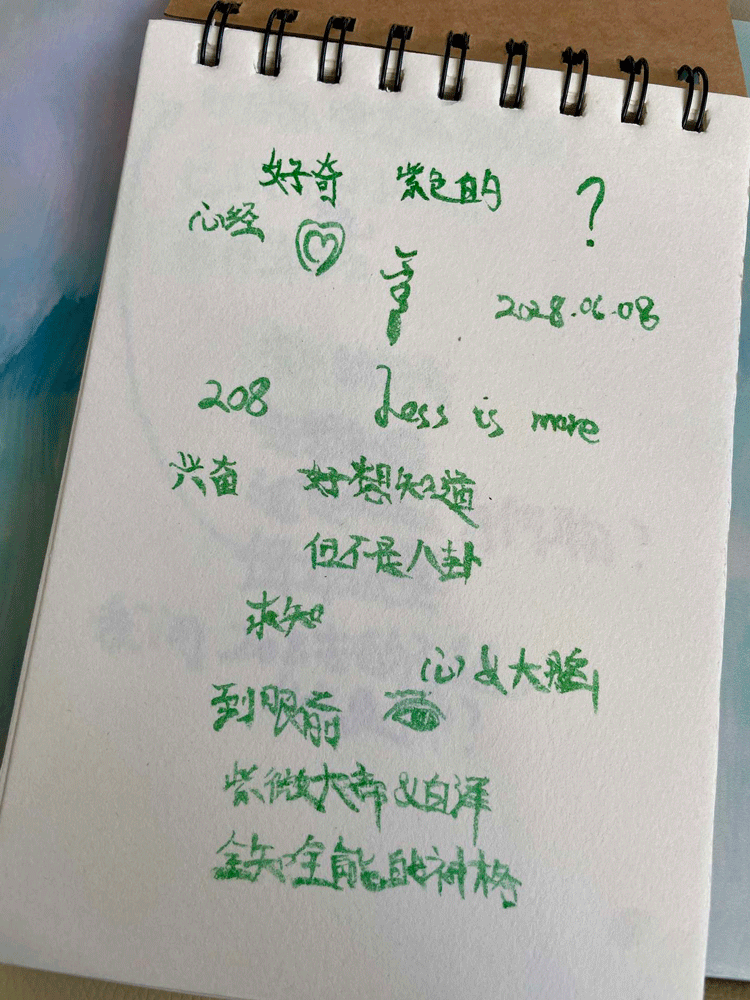 好奇 紫色的 ?
心经
2028.06.08
208 Less is more
兴奋 好想知道
但不是八卦
求知
心 & 大脑
到眼前
紫微大帝&白泽
全知全能的神格